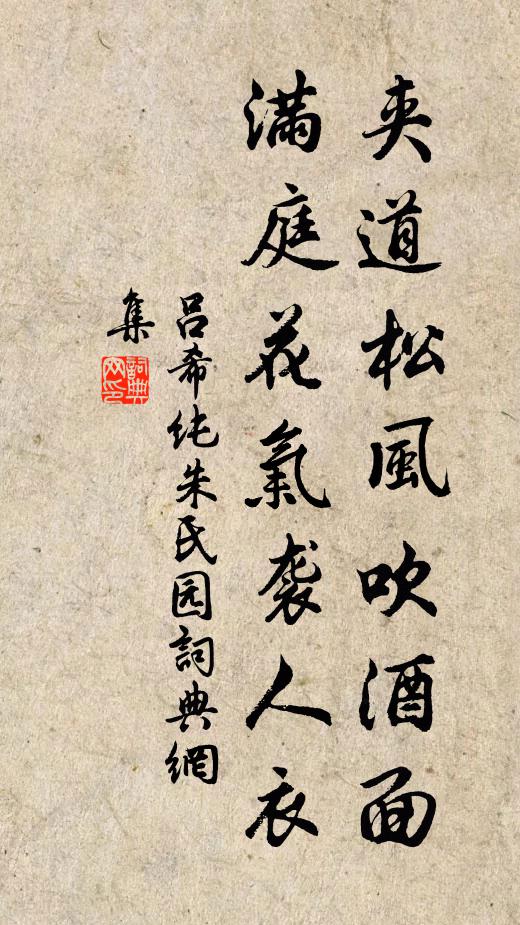 夹道松風吹酒面
滿庭花氣袭人衣
呂希纯朱氏园詞典網
集
詞典
网印